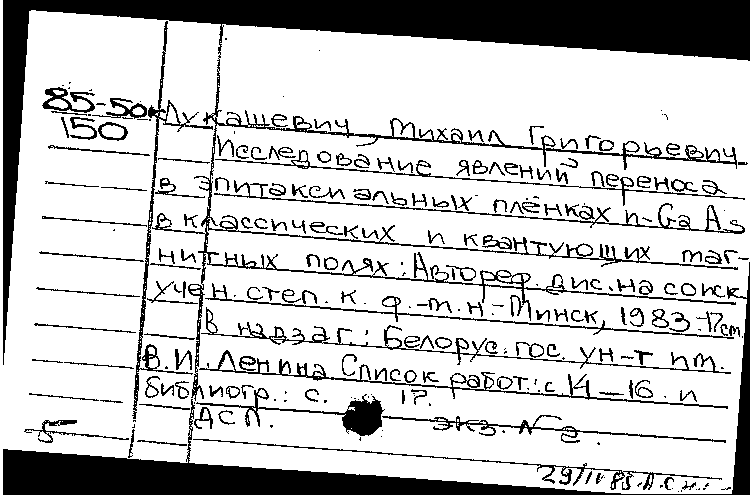 85-50к
150
Лукашевич, Михаил Григорьевич
Исследование явлений переноса
в эпитаксиальных плёнках n-GaAs
в классических и квантующих маг-
нитных полях: Автореф. дис. на соиск.
учен. степ. к. ф.-м.н.-Минск, 1983.-17см.
В надзаг.: Белорус. гос. ун-т им.
В.И. Ленина. Список работ: с. 14-16. и
библиогр.: с. 17.
ДСП. экз. №2.
29/IV 83.